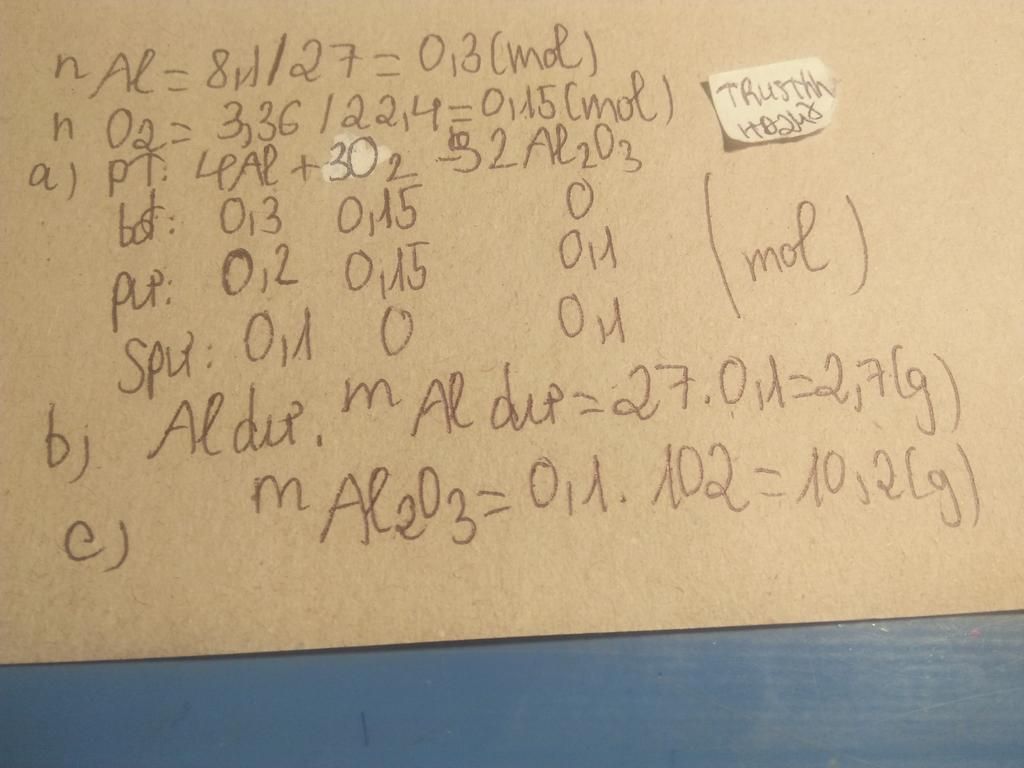 n Al = 8,1/27 = 0,3(mol)
n O2 = 3,36/22,4 = 0,15(mol)
a) PT: 4Al + 3O2 → 2Al2O3
bđ: 0,3 0,15 0
pư: 0,2 0,15 0,1
Spư: 0,1 0 0,1
(mol)
b) Al dư. m Al dư = 27.0,1 = 2,7(g)
c) m Al2O3 = 0,1.102 = 10,2(g)